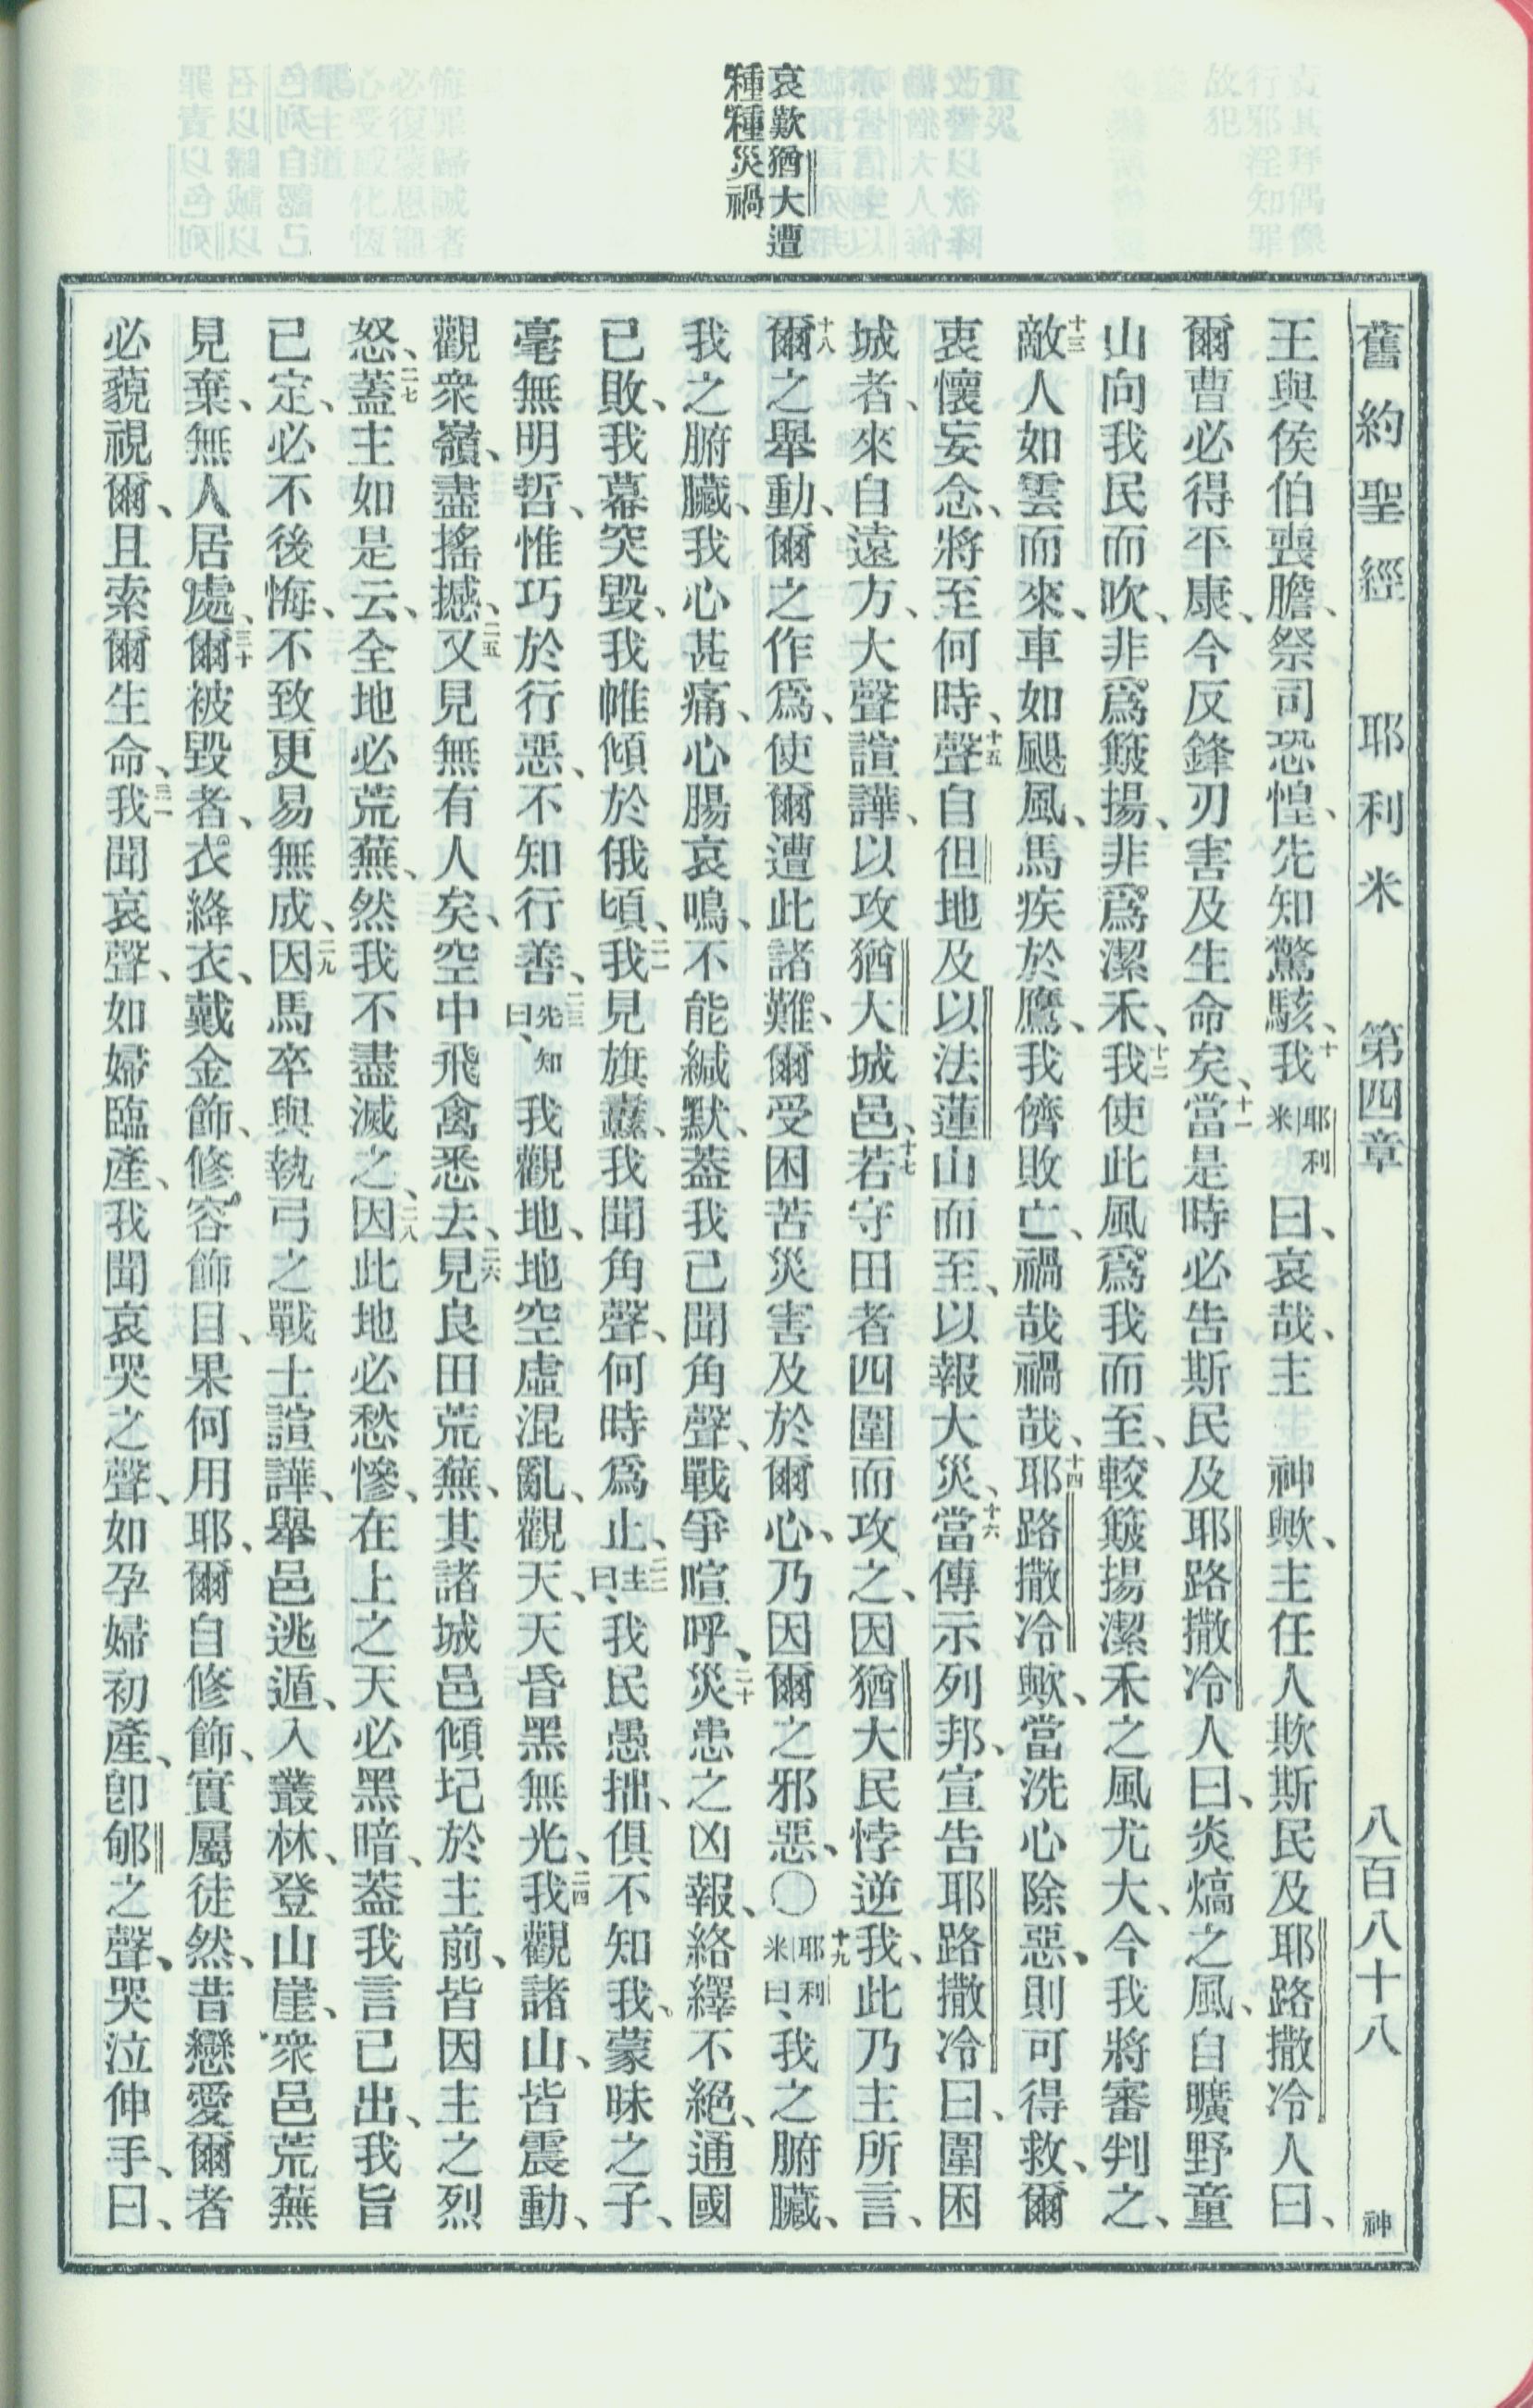 哀歎猶大遭
種種災禍
舊約聖經 耶利米 第四章 八百八十八 神
王與侯伯喪膽、祭司恐惶、先知驚駭、十我耶利米曰、哀哉、主 神歟、主任人欺斯民及耶路撒冷人曰、
爾曹必得平康、今反鋒刃害及生命矣、十一當是時必告斯民及耶路撒冷人曰、炎熇之風、自曠野童
山向我民而吹、非爲簸揚、非爲潔禾、十二我使此風爲我而至、較簸揚潔禾之風尤大、今我將審判之、
十三敵人如雲而來、車如颶風、馬疾於鷹、我儕敗亡、禍哉禍哉、十四耶路撒冷歟、當洗心除惡、則可得救、爾
衷懷妄念、將至何時、十五聲自但地及以法蓮山而至、以報大災、十六當傳示列邦、宣告耶路撒冷曰、圍困
城者、來自遠方、大聲諠譁、以攻猶大城邑、十七若守田者四圍而攻之、因猶大民悖逆我、此乃主所言、
十八爾之舉動、爾之作爲、使爾遭此諸難、爾受困苦災害及於爾心、乃因爾之邪惡、〇十九耶利米曰、我之腑臟、
我之腑臟、我心甚痛、心腸哀鳴、不能緘默、蓋我已聞角聲、戰爭喧呼、二十災患之凶報、絡繹不絕、通國
已敗、我幕突毀、我帷傾於俄頃、二一我見旗纛、我聞角聲、何時爲止、二二主曰、我民愚拙、俱不知我、蒙昧之子、
毫無明哲、惟巧於行惡、不知行善、二三先知曰、我觀地、地空虛混亂、觀天、天昏黑無光、二四我觀諸山、皆震動、
觀衆嶺、盡搖撼、二五又見無有人矣、空中飛禽悉去、二六見良田荒蕪、其諸城邑傾圮於主前、皆因主之烈
怒、二七蓋主如是云、全地必荒蕪、然我不盡滅之、二八因此地必愁慘、在上之天必黑暗、蓋我言已出、我旨
已定、必不後悔、不致更易無成、二九因馬卒與執弓之戰士諠譁、舉邑逃遁、入叢林、登山崖、衆邑荒蕪
見棄、無人居處、三十爾被毀者、衣絳衣、戴金飾、修容飾目、果何用耶、爾自修飾、實屬徒然、昔戀愛爾者
必藐視爾、且索爾生命、三一我聞哀聲、如婦臨產、我聞哀哭之聲、如孕婦初產、卽郇之聲、哭泣伸手、曰、